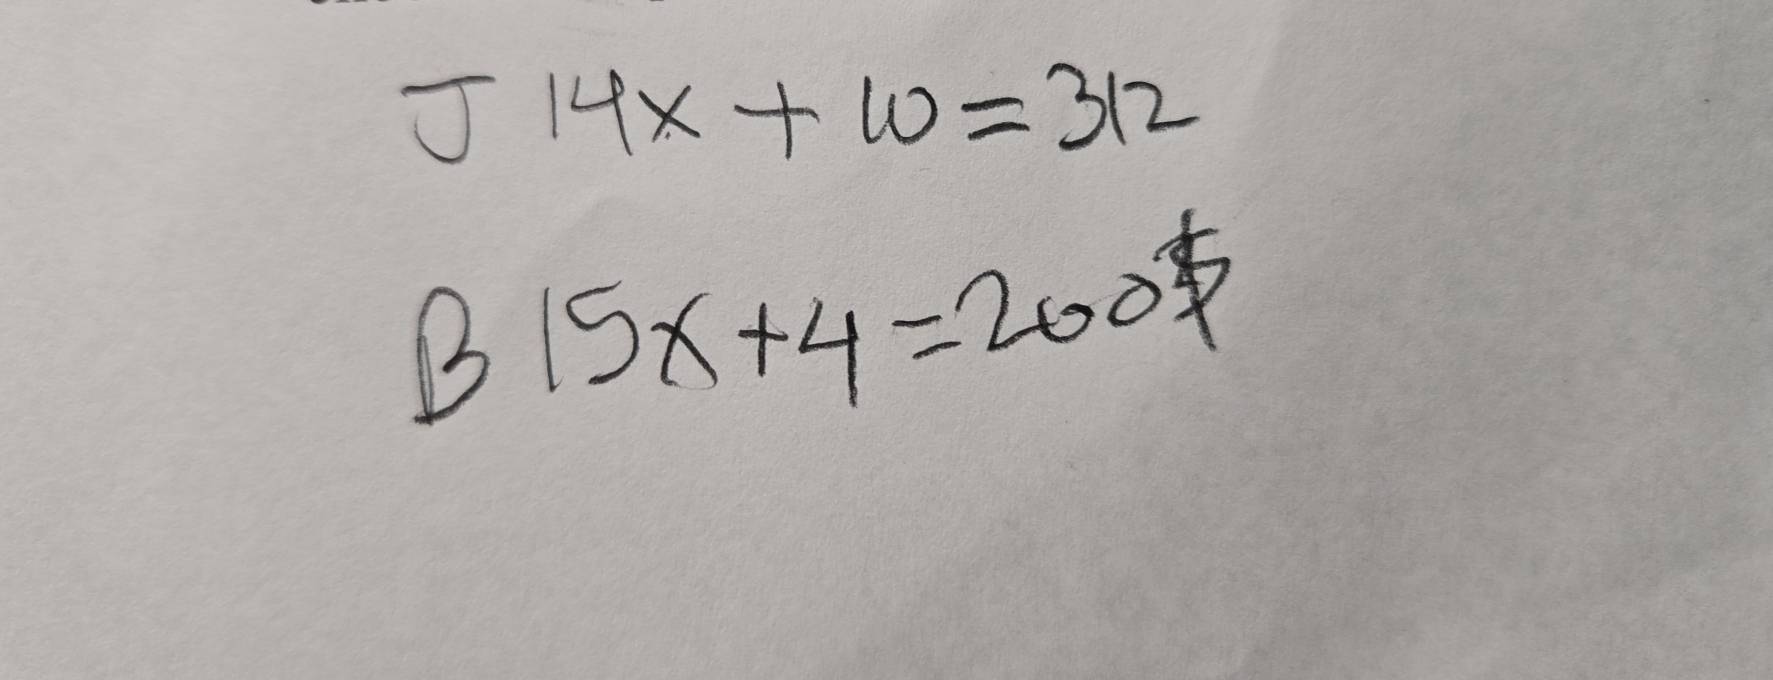 J 14x + 10 = 312
B 15x + 4 = 200$